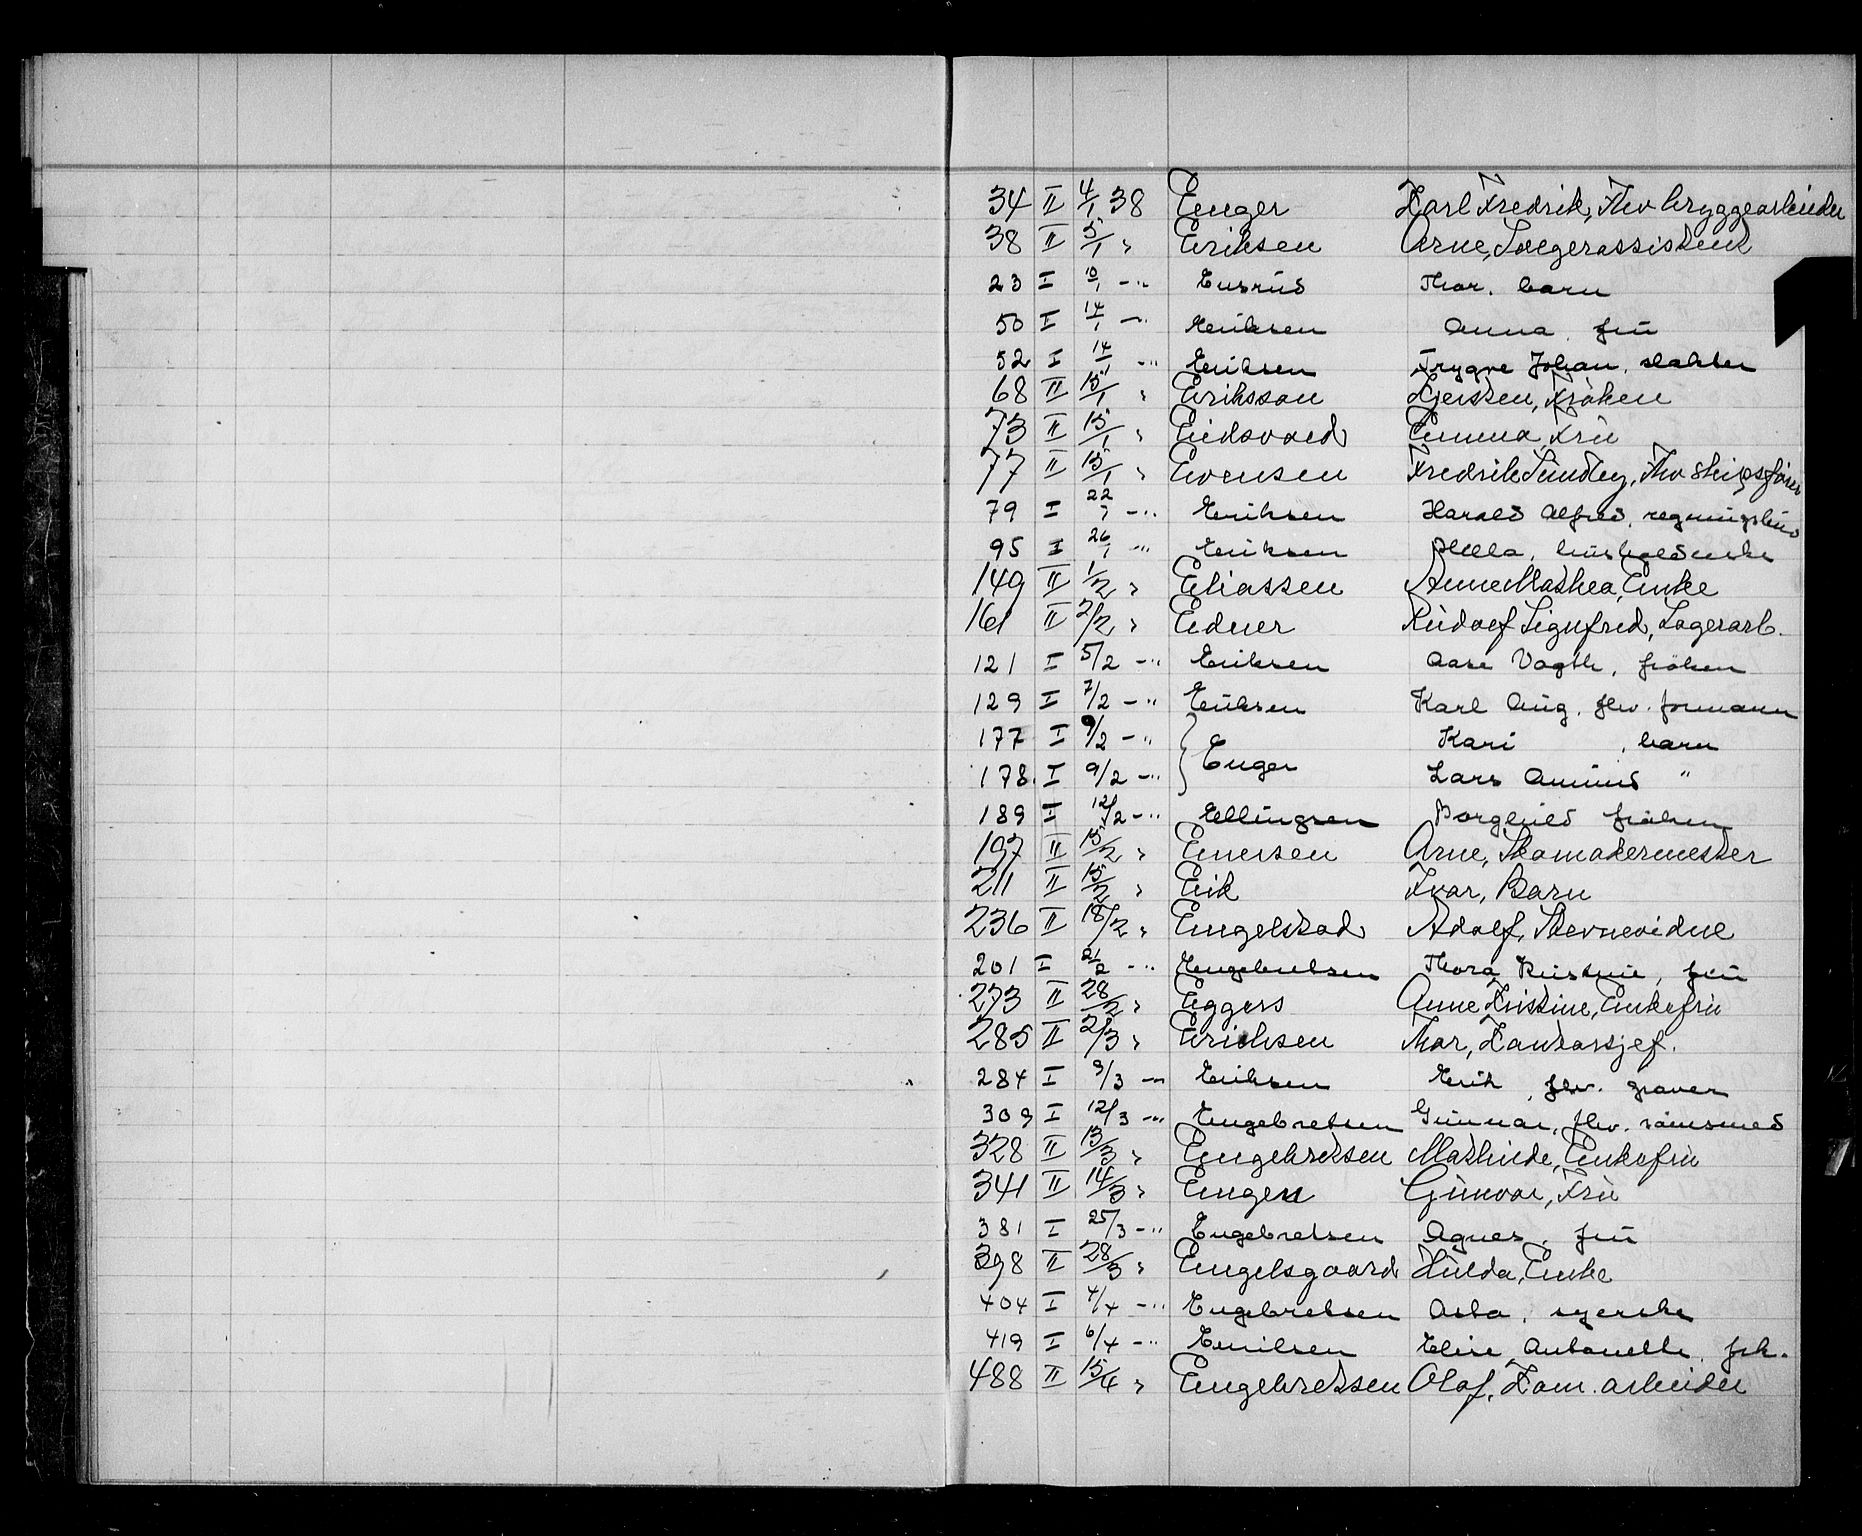 34 II 4/1 38 Enger Karl Fredrik, Fhv bryggearbeider
38 II 5/1 " Eriksen Arne, Lægerassistent
23 I 10/1 -"- Ensrud Thor. barn
50 I 14/1 -"- Eriksen Anna, fru
52 I 14/1 -"- Eriksen Trygve Johan. slakter
68 II 15/1 " Eriksson Kjersten, Frøken
73 II 15/1 " Eidsvold Emma, Fru
77 II 15/1 " Evensen Fredrik Lundby, Fhv skipsfører
79 I 22/1 -"- Eriksen Harald Alfred, regningsbud
95 I 26/1 -"- Eriksen husholderske
149 II 1/2 " Eliassen Anne Mathea, Enke
161 II 2/2 " Edner Rudolf Sigufred, Lagerarb.
121 I 5/2 -"- Eriksen Aase Vogth, frøken
129 I 7/2 -"- Eriksen Karl Aug. fhv. formann
177 I 9/2 -"- Enger Kari, barn
178. I 9/2 -"- Lars Amund "
189 I 12/2 -"- Ellingsen Borghild frøken
197 II 15/2 " Emersen Arne, Skomakermester
211 II 15/2 " Erik Ivar, Barn
236 II 18/2 " Engelstad Adolf, Stevnevidne
201 I 21/2 -"- Engebretsen Thora Kristine, fru
273 II 28/2 " Eggers Anne Kristine, Enkefru
285 II 2/3 " Erichsen Thor, Kontorsjef.
284 I 9/3 -"- Eriksen Erik, fhv. graver
309 I 12/3 -"- Engebretsen Gunnar, fhv.
328 II 13/3 " Engebretsen Mathilde, Enkefru
341 II 14/3 " Engen Gunvor, Fru
381 I 25/3 -"- Engebretsen Agnes, fru
398 II 28/3 " Engelsgaard Hulda, Enke
404 I 4/4 -"- Engebretsen Asta, syerske
419 I 6/4 -"- Emilsen Elise Antonette, frk.
488 II 15/4 " Engebretsen Olaf, Kom. arbeider